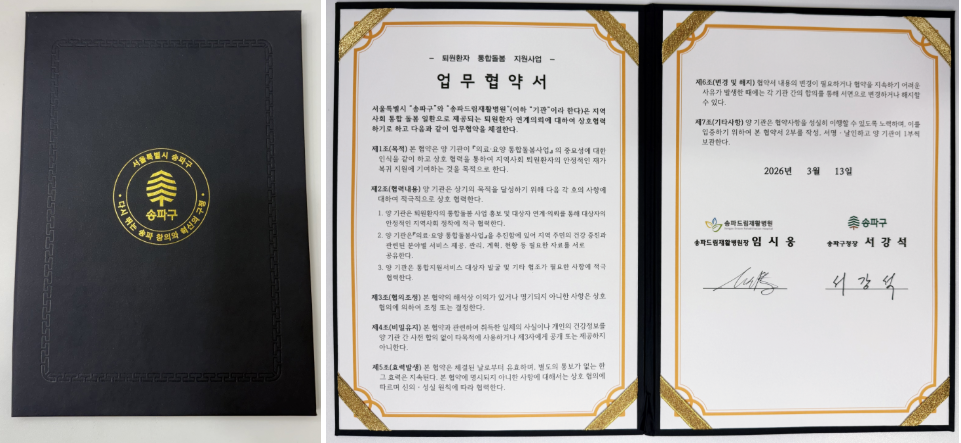 서울특별시 송파구
송파구
다시 뛰는 송파 창의와 혁신의 구정
- 퇴원환자 통합돌봄 지원사업 -
업무협약서
서울특별시 "송파구"와 "송파드림재활병원"(이하 "기관"이라 한다)은 지역
사회 통합 돌봄 일환으로 제공되는 퇴원환자 연계의뢰에 대하여 상호협력
하기로 하고 다음과 같이 업무협약을 체결한다.
제1조(목적) 본 협약은 양 기관이 『의료·요양 통합돌봄사업』의 중요성에 대한
인식을 같이 하고 상호 협력을 통하여 지역사회 퇴원환자의 안정적인 재가
복귀 지원에 기여하는 것을 목적으로 한다.
제2조(협력내용) 양 기관은 상기의 목적을 달성하기 위해 다음 각 호의 사항에
대하여 적극적으로 상호 협력한다.
1. 양 기관은 퇴원환자의 통합돌봄 사업 홍보 및 대상자 연계·의뢰를 통해 대상자의
안정적인 지역사회 정착에 적극 협력한다.
2. 양 기관은『의료·요양 통합돌봄사업』을 추진함에 있어 지역 주민의 건강 증진과
관련된 분야별 서비스 제공, 관리, 계획, 현황 등 필요한 자료를 서로
공유한다.
3. 양 기관은 통합지원서비스 대상자 발굴 및 기타 협조가 필요한 사항에 적극
협력한다.
제3조(협의조정) 본 협약의 해석상 이의가 있거나 명기되지 아니한 사항은 상호
협의에 의하여 조정 또는 결정한다.
제4조(비밀유지) 본 협약과 관련하여 취득한 일체의 사실이나 개인의 건강정보를
양 기관 간 사전 합의 없이 타목적에 사용하거나 제3자에게 공개 또는 제공하지
아니한다.
제5조(효력발생) 본 협약은 체결된 날로부터 유효하며, 별도의 통보가 없는 한
그 효력은 지속된다. 본 협약에 명시되지 아니한 사항에 대해서는 상호 협의에
따르며 신의·성실 원칙에 따라 협력한다.
제6조(변경 및 해지) 협약서 내용의 변경이 필요하거나 협약을 지속하기 어려운
사유가 발생한 때에는 각 기관 간의 합의를 통해 서면으로 변경하거나 해지할
수 있다.
제7조(기타사항) 양 기관은 협약사항을 성실히 이행할 수 있도록 노력하며, 이를
입증하기 위하여 본 협약서 2부를 작성, 서명·날인하고 양 기관이 1부씩
보관한다.
2026년 3월 13일
송파드림재활병원
송파드림재활병원장 임시웅
송파구
송파구청장 서강석
서강석